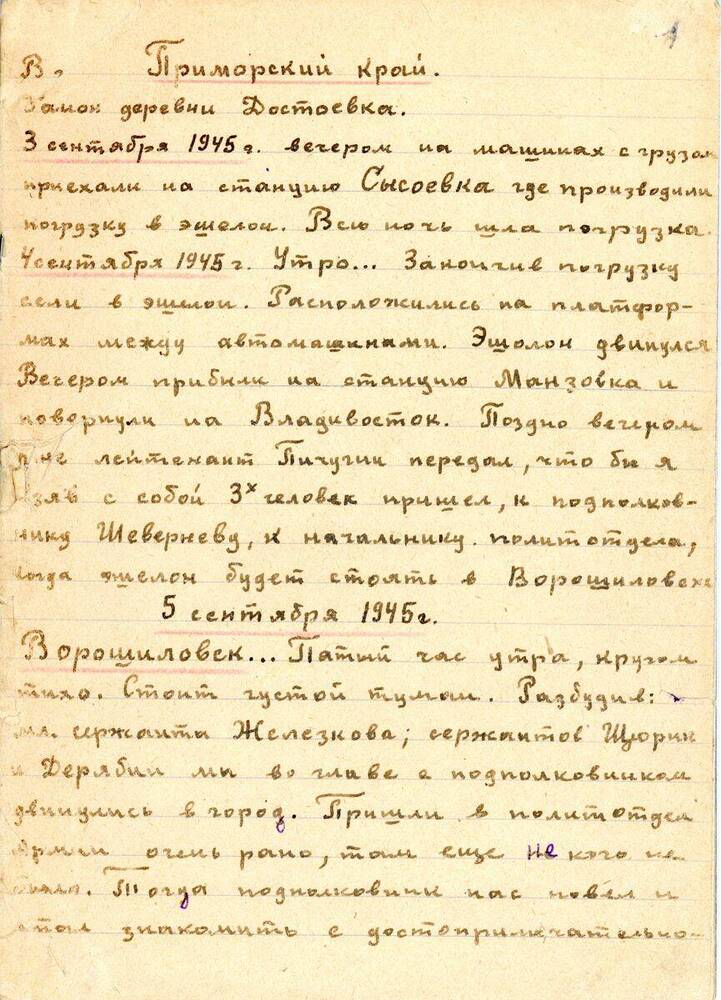 1
В. Приморский край.
Замок деревни Достоевка.
3 сентября 1945 г. вечером на машинах с грузом
приехали на станцию Сысоевка где производили
погрузку в эшелон. Всю ночь шла погрузка.
4 сентября 1945 г. Утро... Закончив погрузку
сели в эшелон. Расположились на платфор-
мах между автомашинами. Эшолон двинулся
Вечером прибыли на станцию Манзовка и
повернули на Владивосток. Поздно вечером
мне лейтенант Пичугин передал, что бы я
взяв с собой 3х человек пришел, к подполков-
нику Шеверневу, к начальнику политотдела,
когда эшелон будет стоять в Ворошиловске
5 сентября 1945 г.
Ворошиловск... Пятый час утра, кругом
тихо. Стоит густой туман. Разбудив:
мл. сержанта Железкова; сержантов Щюрин
и Дерябин мы во главе с подполковником
двинулись в город. Пришли в политотдел
Армии очень рано, там еще не кого не
было. Тогда подполковник нас повел и
стал знакомить с достопримечательно-